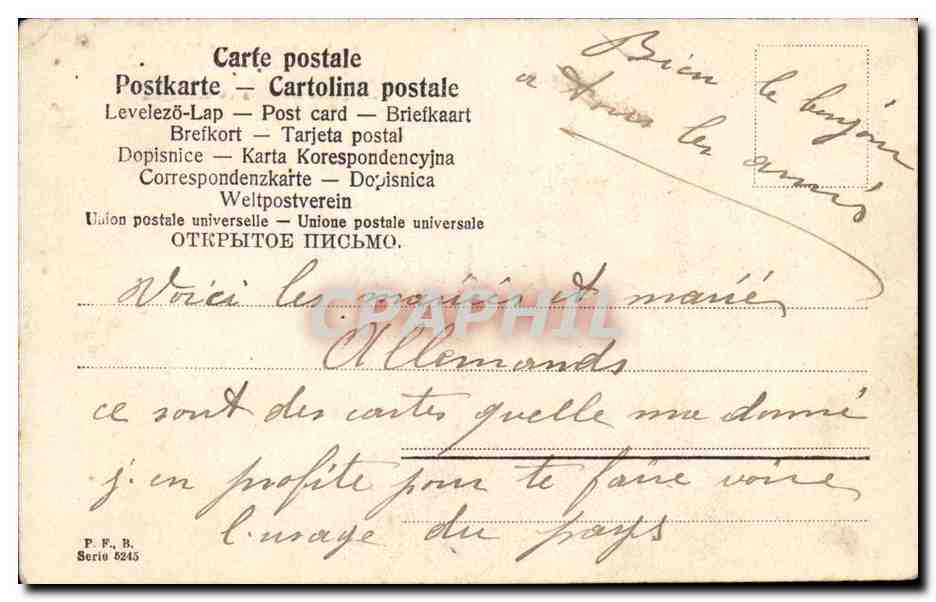 Carte postale
Postkarte — Cartolina postale
Levelezö-Lap — Post card — Briefkaart
Brefkort — Tarjeta postal
Dopisnice — Karta Korespondencyjna
Correspondenzkarte — Dopisnica
Weltpostverein
Union postale universelle — Unione postale universale
ОТКРЫТОЕ ПИСЬМО.
Bien le bonjour
a tous les amis
Voici les mariées et marié
Allemands
ce sont des cartes quelle ma donné
j.en profite pour te faire voire
l.usage du pays
P. F., B.
Serie 5245
CPAPHIL